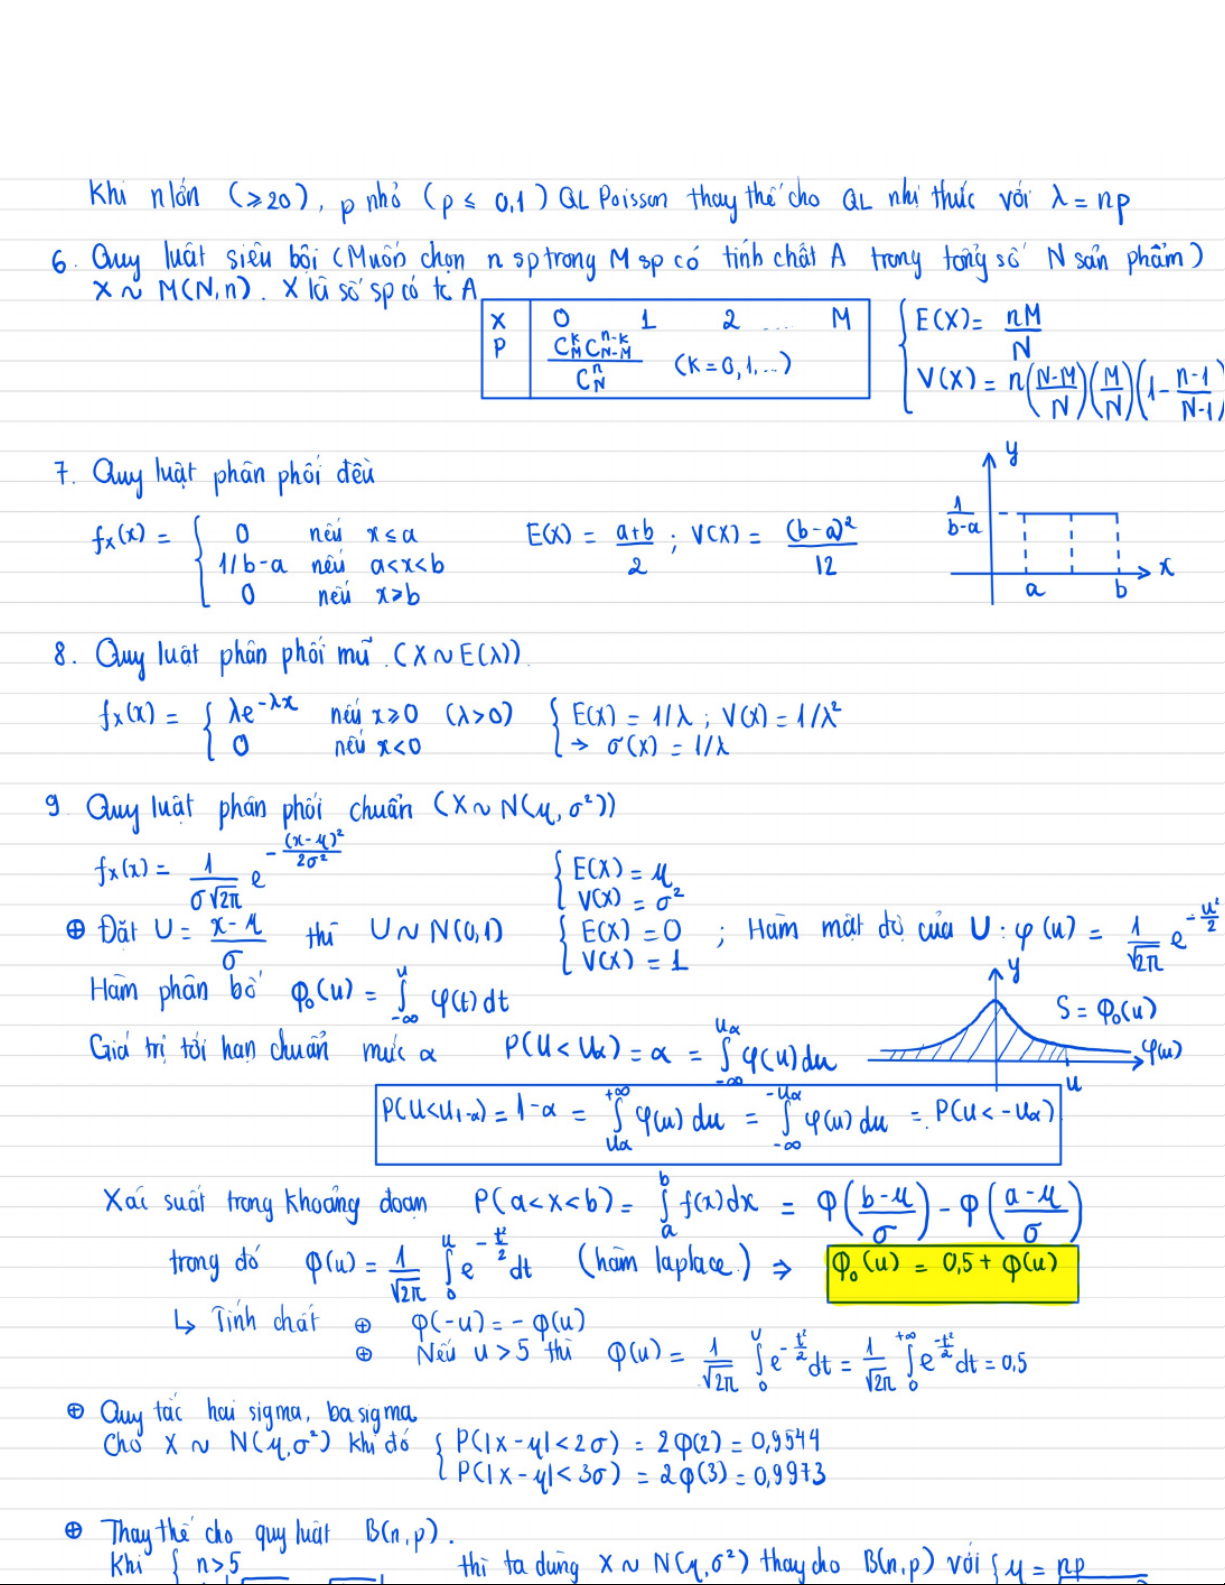 Khi n lớn (≥20), p nhỏ (p ≤ 0,1) QL Poisson thay thế cho QL nhị thức với λ = np
6. Quy luật siêu bội (Muốn chọn n sp trong M sp có tính chất A trong tổng số N sản phẩm)
X ~ M(N,n). X là số sp có tc A
X | 0 1 2 ... M
P | C_M^k C_{N-M}^{n-k} / C_N^n (k = 0,1,...)
{ E(X) = nM/N
V(X) = n((N-M)/N)(M/N)(1 - (n-1)/(N-1))
7. Quy luật phân phối đều
f_X(x) = { 0 nếu x ≤ a
1/b-a nếu a<x<b
0 nếu x≥b
E(X) = (a+b)/2 ; V(X) = (b-a)²/12
y 1/(b-a) a b x
8. Quy luật phân phối mũ. (X ~ E(λ))
f_X(x) = { λe^{-λx} nếu x≥0 (λ>0)
0 nếu x<0
{ E(X) = 1/λ ; V(X) = 1/λ²
→ σ(X) = 1/λ
9 Quy luật phân phối chuẩn (X ~ N(μ, σ²))
f_X(x) = 1/(σ√2π) e^{-(x-μ)²/2σ²}
{ E(X) = μ
V(X) = σ²
⊕ Đặt U = (x-μ)/σ thì U ~ N(0,1) { E(X) = 0 V(X) = 1 ; Hàm mật độ của U: φ(u) = 1/√2π e^{-u²/2}
Hàm phân bố Φ₀(u) = ∫_{-∞}^{u} φ(t)dt
y S = Φ₀(u) φ(u) u
Giá trị tới hạn chuẩn mức α P(U < Uα) = α = ∫_{-∞}^{Uα} φ(u)du
P(U<U_{1-α}) = 1-α = ∫_{Uα}^{+∞} φ(u)du = ∫_{-∞}^{-Uα} φ(u)du = P(U < -Uα)
Xác suất trong khoảng đoạn P(a<X<b) = ∫_a^b f(x)dx = Φ((b-μ)/σ) - Φ((a-μ)/σ)
trong đó Φ(u) = 1/√2π ∫_0^u e^{-t²/2} dt (hàm laplace) ⇒ Φ₀(u) = 0,5 + Φ(u)
↳ Tính chất ⊕ Φ(-u) = -Φ(u)
⊕ Nếu u>5 thì Φ(u) = 1/√2π ∫_0^U e^{-t²/2}dt = 1/√2π ∫_0^{+∞} e^{-t²/2}dt = 0,5
⊕ Quy tắc hai sigma, ba sigma
Cho X ~ N(μ,σ²) khi đó { P(|X-μ|<2σ) = 2Φ(2) = 0,9544
P(|X-μ|<3σ) = 2Φ(3) = 0,9973
⊕ Thay thế cho quy luật B(n,p).
Khi { n>5 thì ta dùng X ~ N(μ,σ²) thay cho B(n,p) với { μ = np